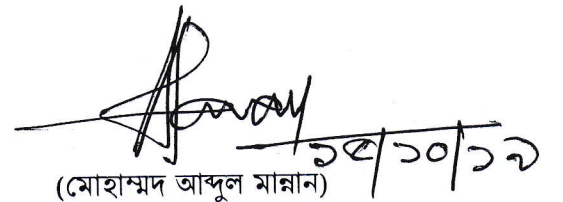 ১৫/১০/১৯
(মোহাম্মদ আব্দুল মান্নান)